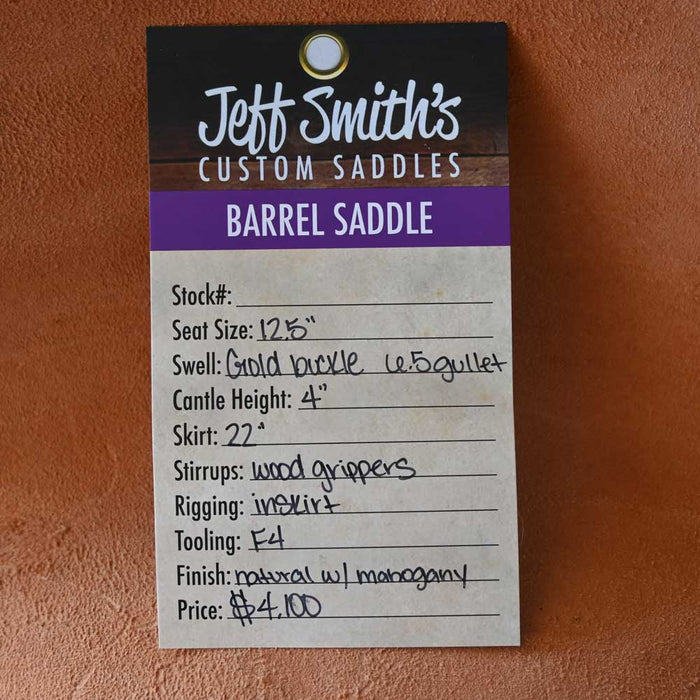 Jeff Smith's
CUSTOM SADDLES
BARREL SADDLE
Stock#:
Seat Size: 12.5"
Swell: Gold buckle 6.5 gullet
Cantle Height: 4"
Skirt: 22"
Stirrups: wood grippers
Rigging: inskirt
Tooling: F4
Finish: natural w/ mahogany
Price: $4,100